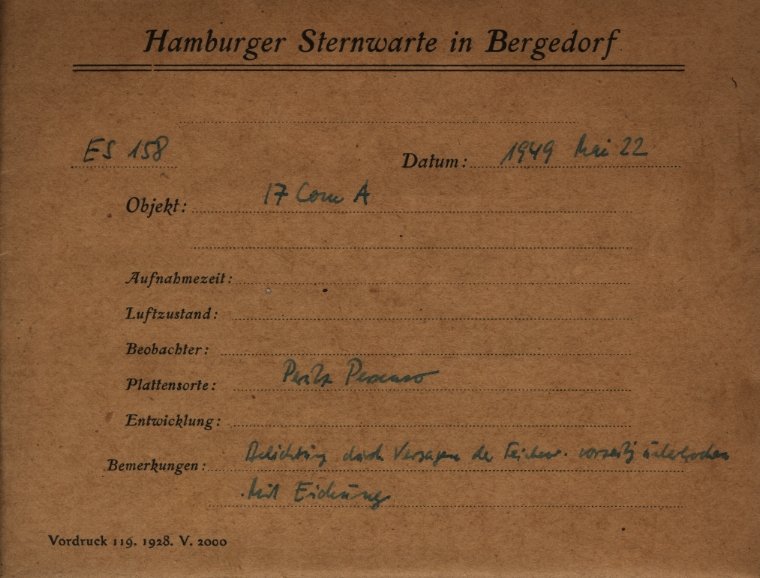 Hamburger Sternwarte in Bergedorf
ES 158
Datum: 1949 Mai 22
Objekt: 17 Com A
Aufnahmezeit:
Luftzustand:
Beobachter:
Plattensorte: Perutz Persenso
Entwicklung:
Bemerkungen: Belichtung durch Versagen der vorzeitig unterbrochen
Mit Eichung
Vordruck 119. 1928. V. 2000